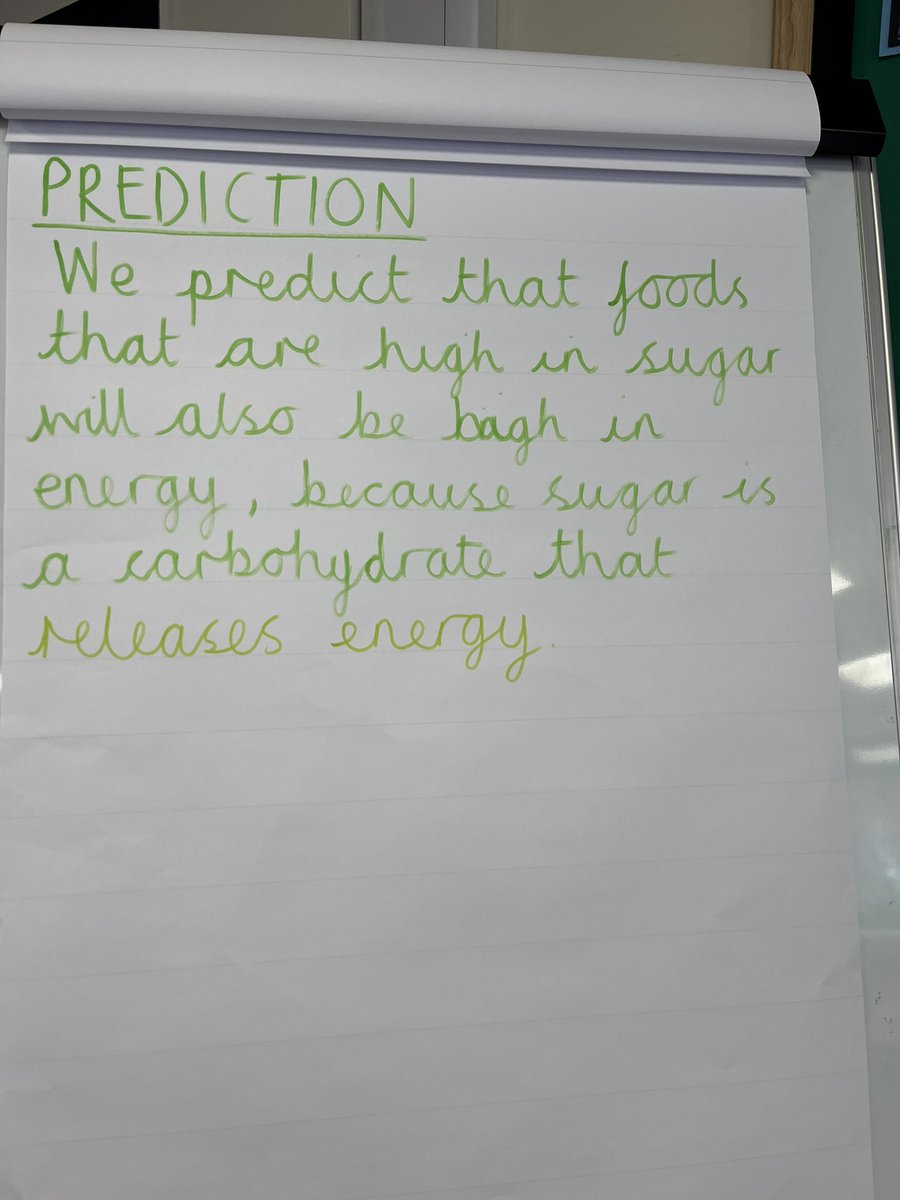 PREDICTION
We predict that foods
that are high in sugar
will also be bagh in
energy, because sugar is
a carbohydrate that
releases energy.